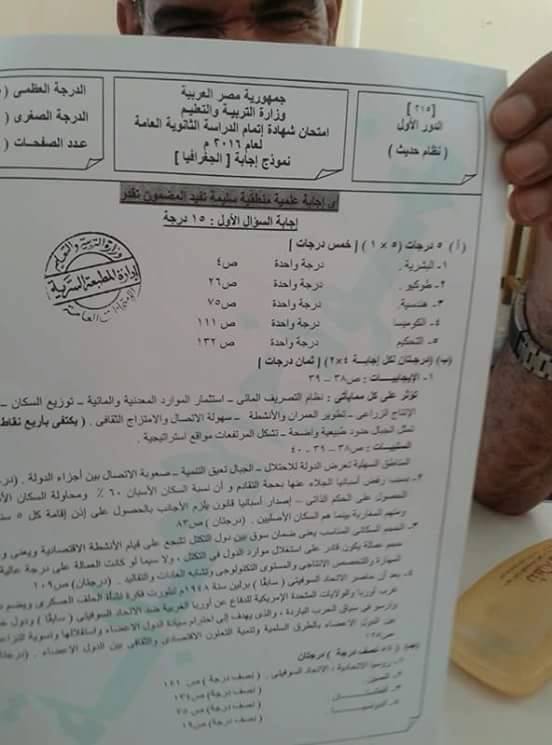 [٢١٥]
الدور الأول
( نظام حديث )
جمهورية مصر العربية
وزارة التربية والتعليم
امتحان شهادة إتمام الدراسة الثانوية العامة
لعام ٢٠١٦ م
نموذج إجابة [ الجغرافيا ]
الدرجة العظمى (
الدرجة الصغرى (
عدد الصفحات (
إجابة علمية منطقية سليمة تفيد المضمون تقدر
إجابة السؤال الأول : ١٥ درجة
( أ ) ٥ درجات (٥ × ١) [ خمس درجات ]
١- البشرية . درجة واحدة ص٤
٢- طوكيو . درجة واحدة ص٢٦
٣- هندسية . درجة واحدة ص٧٥
٤- الكوميسا درجة واحدة ص١١١
٥- التحكيم درجة واحدة ص١٣٢
(ب) (درجتان لكل إجابة ٤×٢) [ ثمان درجات ]
١- الإيجابيات : ص٣٨ – ٣٩
تؤثر على كل مما يأتى : نظام التصريف المائى – استثمار الموارد المعدنية والمائية – توزيع السكان –
الإنتاج الزراعى – تطوير العمران والأنشطة – سهولة الاتصال والامتزاج الثقافى . ( يكتفى بأربع نقاط
تمثل الجبال حدود طبيعية واضحة – تشكل المرتفعات مواقع استراتيجية .
السلبيات : ص٣٨ – ٣٩ – ٤٠
المناطق السهلية تعرض الدولة للاحتلال – الجبال تعيق التنمية – صعوبة الاتصال بين أجزاء الدولة .
٢- بسبب رفض أسبانيا الجلاء عنها بحجة التقادم و أن نسبة السكان الأسبان ٦٠ ٪ ومحاولة السكان
الحصول على الحكم الذاتى – إصدار أسبانيا قانون يلزم الأجانب بالحصول على إذن إقامة كل ٥
ومنهم المغاربة بينما هم السكان الأصليين . ( درجتان ) ص٨٣
٣- الحجم السكانى المناسب يعنى ضمان سوق بين دول التكتل تشجع على قيام الأنشطة الاقتصادية ويعنى
حجم عمالة يكون قادر على استغلال موارد الدول فى التكتل ، ولا سيما لو كانت العمالة على درجة عالية
المهارة والتخصص الإنتاجى والمستوى التكنولوجى وتشابه العادات والتقاليد . ( درجتان) ص١٠٩
٤- بعد أن حاصر الاتحاد السوفيتى ( سابقًا ) برلين سنة ١٩٤٨م تطورت فكرة نشأة الحلف العسكرى ويضم
غرب أوربا والولايات المتحدة الأمريكية للدفاع عن أوربا الغربية ضد الاتحاد السوفيتى ( سابقًا ) ودول
بين الدول الأعضاء بالطرق السلمية وتنمية التعاون الاقتصادى والثقافى بين الدول الأعضاء .
نصف درجة ) درجتان
١- روسيا الاتحادية ، الاتحاد السوفيتى . ( نصف درجة) ص ١٤١
( نصف درجة) ص١٣٤
( نصف درجة) ص ٧٥
( نصف درجة) ص١٩
وزارة التربية والتعليم
إدارة المطبعة السرية